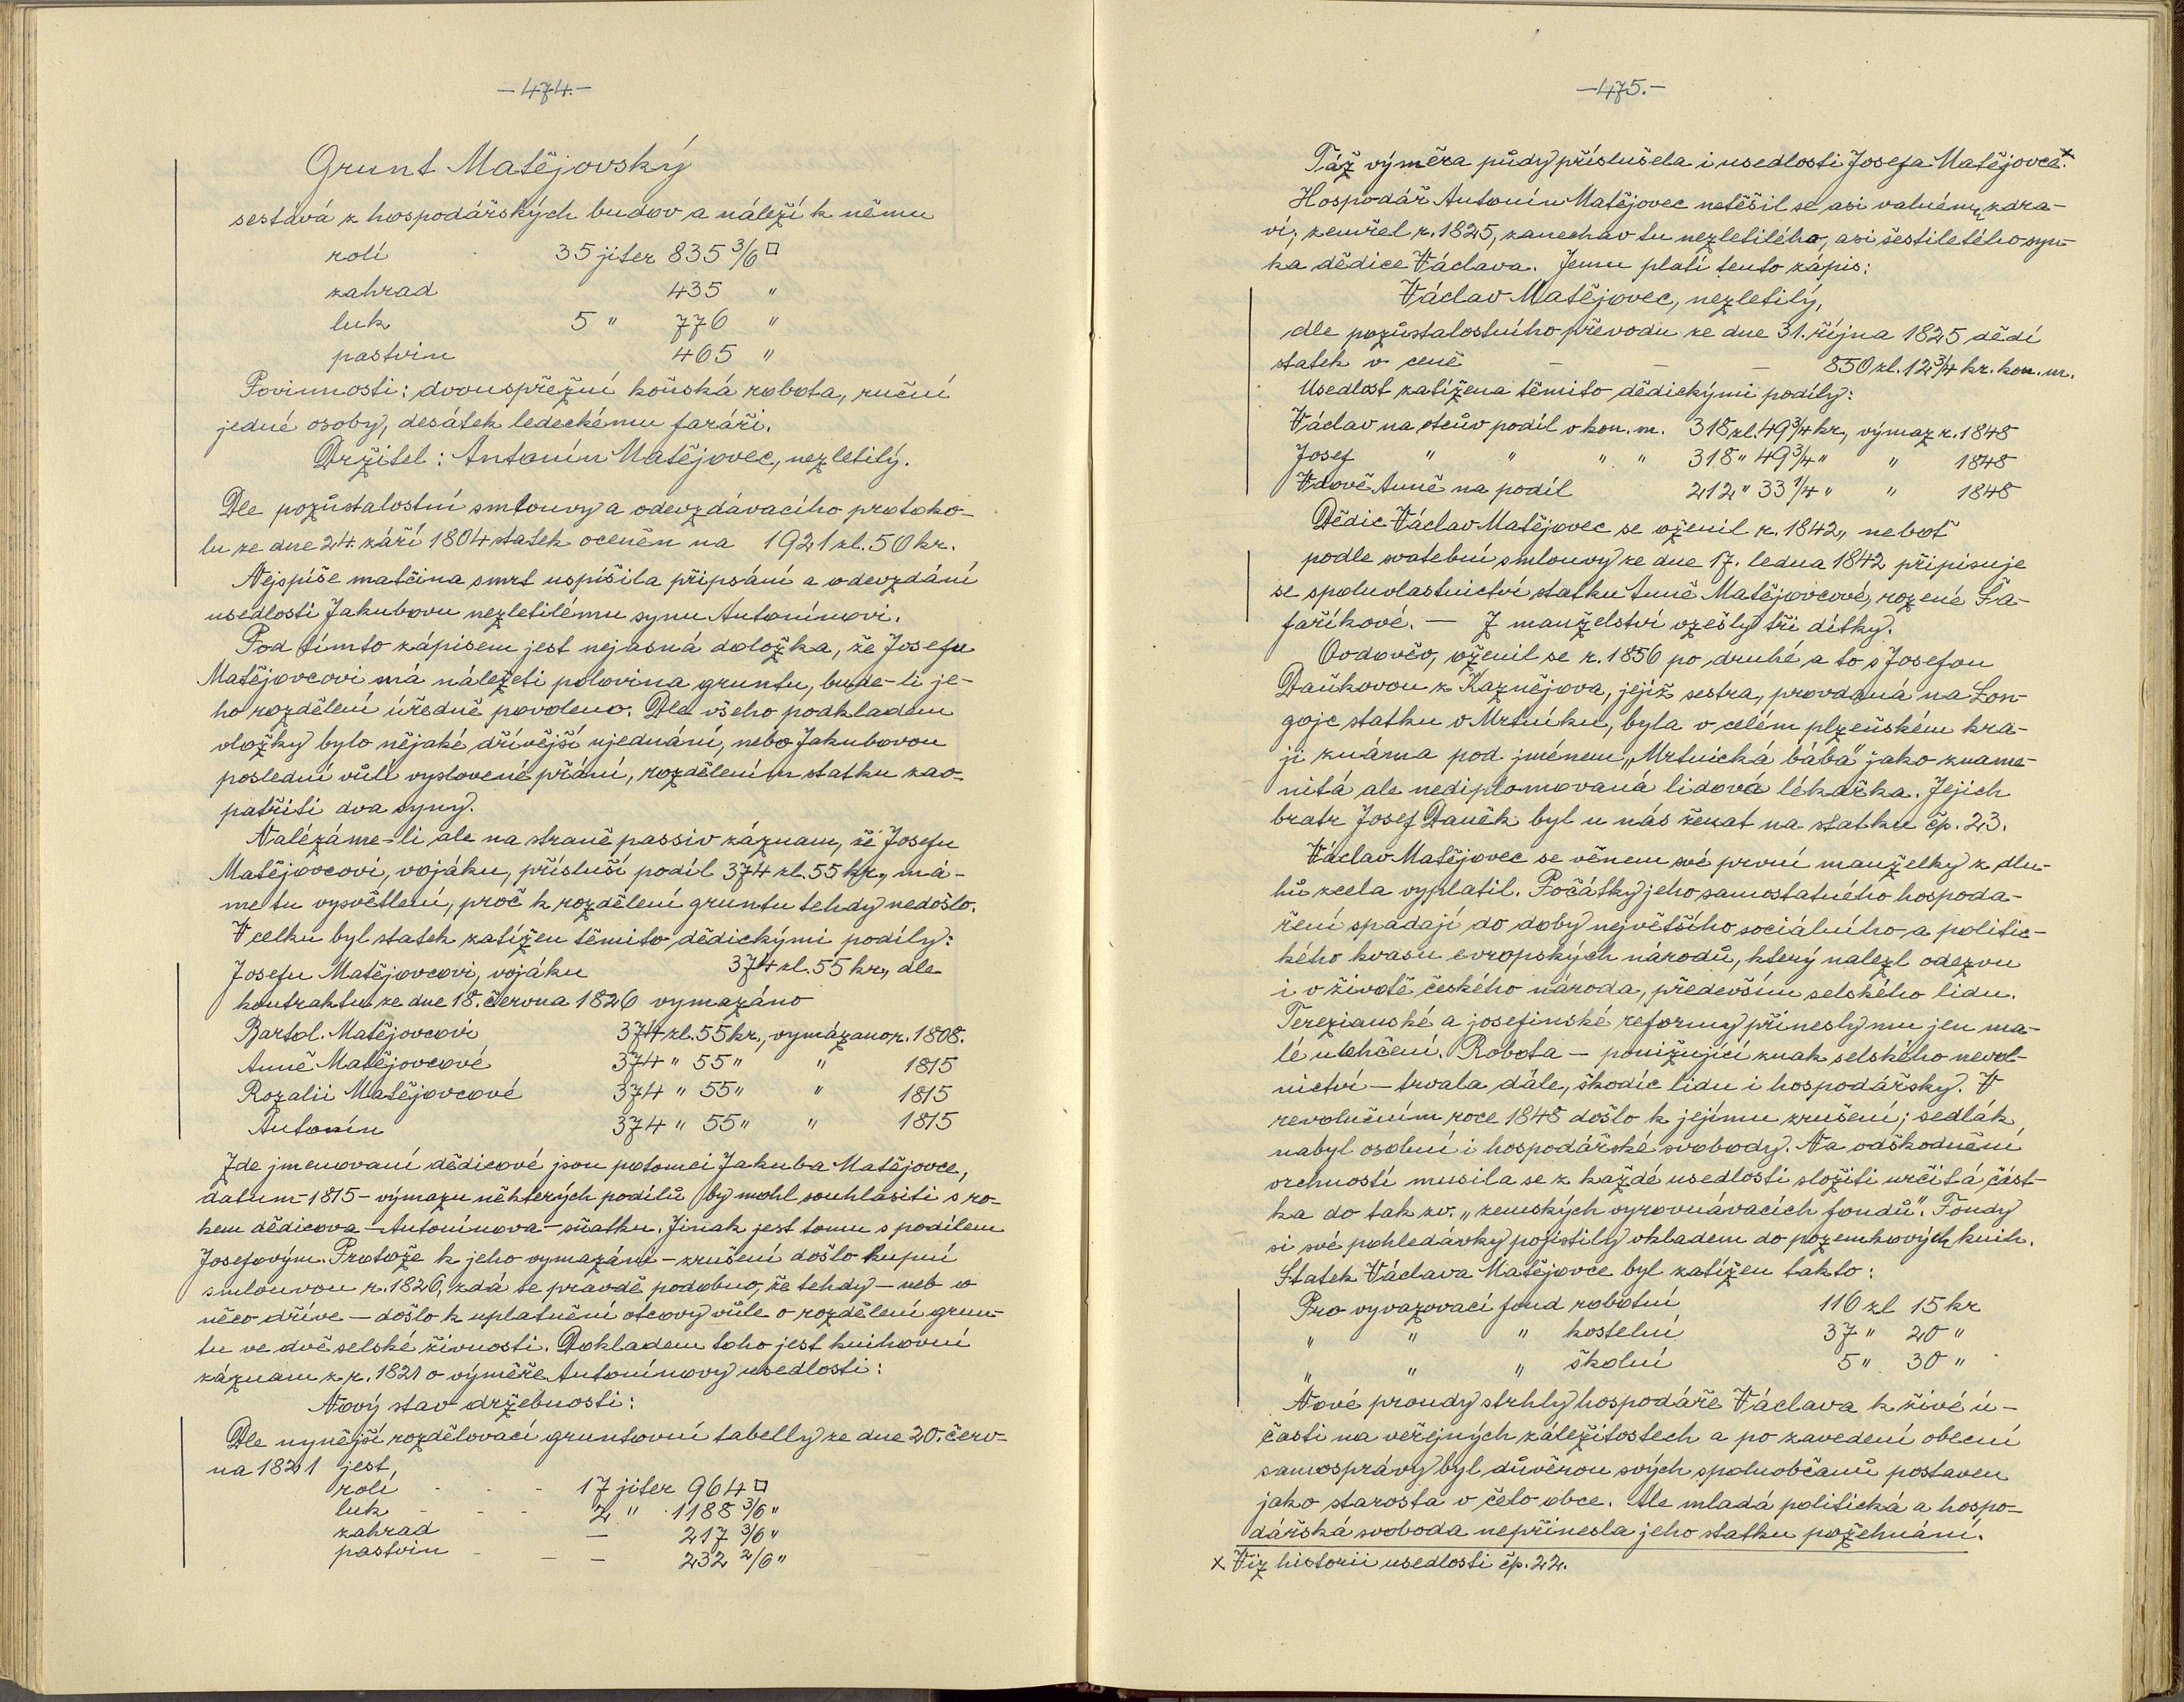 —474.—
Grunt Matějovský
sestává z hospodářských budov a náleží k němu
rolí 35 jiter 835 3/6 □
zahrad 435 "
luk 5 " 776 "
pastvin 465 "
Povinnosti: dvouspřežní koňská robota, ruční
jedné osoby, desátek ledeckému faráři.
Držitel: Antonín Matějovec, nezletilý.
Dle pozůstalostní smlouvy a odevzdávacího protoko-
lu ze dne 24. září 1804 statek oceněn na 1921 zl. 50 kr.
Nejspíše matčina smrt uspíšila připsání a odevzdání
usedlosti Jakubovu nezletilému synu Antonínovi.
Pod tímto zápisem jest nejasná doložka, že Josefu
Matějovcovi má náležeti polovina gruntu, bude-li je-
ho rozdělení úředně povoleno. Dle všeho podkladem
vložky bylo nějaké dřívější ujednání, nebo Jakubovou
poslední vůlí vyslovené přání, rozdělením statku zao-
patřiti dva syny.
Nalézáme-li ale na straně passiv záznam, že Josefu
Matějovcovi, vojáku, přísluší podíl 374 zl. 55 kr., má-
me tu vysvětlení, proč k rozdělení gruntu tehdy nedošlo.
V celku byl statek zatížen těmito dědickými podíly:
Josefu Matějovcovi, vojáku 374 zl. 55 kr., dle
kontraktu ze dne 18. června 1826 vymazáno
Bartol. Matějovcovi 374 zl. 55 kr., vymázano r. 1808.
Anně Matějovcové 374 " 55 " " 1815
Rozalii Matějovcové 374 " 55 " " 1815
Antonín 374 " 55 " " 1815
Zde jmenovaní dědicové jsou potomci Jakuba Matějovce,
datum - 1815 - výmazu některých podílů by mohl souhlasiti s ro-
kem dědicova - Antonínova - sňatku. Jinak jest tomu s podílem
Josefovým. Protože k jeho vymazání - zrušení došlo kupní
smlouvou r. 1826, zdá se pravdě podobno, že tehdy - neb o
něco dříve - došlo k uplatnění otcovy vůle o rozdělení grun-
tu ve dvě selské živnosti. Dokladem toho jest knihovní
záznam z r. 1821 o výměře Antonínovy usedlosti:
Nový stav držebnosti:
Dle nynější rozdělovací gruntovní tabelly ze dne 20. červ-
na 1821 jest
rolí - - - 17 jiter 964 □
luk - - - 2 " 1188 3/6 "
zahrad — 217 3/6 "
pastvin - — — 232 2/6 "
—475.—
Táž výměra půdy příslušela i usedlosti Josefa Matějovce.x
Hospodář Antonín Matějovec netěšil se asi valnému zdra-
ví; zemřel r. 1825, zanechav tu nezletilého, asi šestiletého syn-
ka dědice Václava. Jemu platí tento zápis:
Václav Matějovec, nezletilý,
dle pozůstalostního převodu ze dne 31. října 1825 dědí
statek v ceně — — — 850 zl. 12 3/4 kr. kon. m.
Usedlost zatížena těmito dědickými podíly:
Václav na otcův podíl v kon. m. 318 zl. 49 3/4 kr., výmaz r. 1848
Josef " " " " 318 " 49 3/4 " " 1848
Vdově Anně na podíl 212 " 33 1/4 " " 1848
Dědic Václav Matějovec se oženil r. 1842, neboť
podle svatební smlouvy ze dne 17. ledna 1842 připisuje
se spoluvlastnictví statku Anně Matějovcové, rozené Ša-
faříkové. — Z manželství vzešly tři dítky.
Ovdověv, oženil se r. 1856 po druhé a to s Josefou
Daňkovou z Kaznějova, jejíž sestra, provdaná na Lon-
gojc statku v Mrtníku, byla v celém plzeňském kra-
ji známa pod jménem „Mrtnická bába" jako zname-
nitá ale nediplomovaná lidová lékařka. Jejich
bratr Josef Daněk byl u nás ženat na statku čp. 23.
Václav Matějovec se věnem své první manželky z dlu-
hů zcela vyplatil. Počátky jeho samostatného hospoda-
ření spadají do doby největšího sociálního a politic-
kého kvasu evropských národů, který nalezl odezvu
i v životě českého národa, především selského lidu.
Terezianské a josefinské reformy přinesly mu jen ma-
lé ulehčení. Robota — ponižující znak selského nevol-
nictví — trvala dále, škodíc lidu i hospodářsky. V
revolučním roce 1848 došlo k jejímu zrušení; sedlák
nabyl osobní i hospodářské svobody. Na odškodnění
vrchností musila se z každé usedlosti složiti určitá část-
ka do tak zv. „zemských vyrovnávacích fondů". Fondy
si své pohledávky pojistily vkladem do pozemkových knih.
Statek Václava Matějovce byl zatížen takto:
Pro vyvazovací fond robotní 116 zl 15 kr
" " " kostelní 37 " 20 "
" " " školní 5 " 30 "
Nové proudy strhly hospodáře Václava k živé ú-
časti na veřejných záležitostech a po zavedení obecní
samosprávy byl důvěrou svých spoluobčanů postaven
jako starosta v čelo obce. Ale mladá politická a hospo-
dářská svoboda nepřinesla jeho statku požehnání.
x Viz historii usedlosti čp. 22.